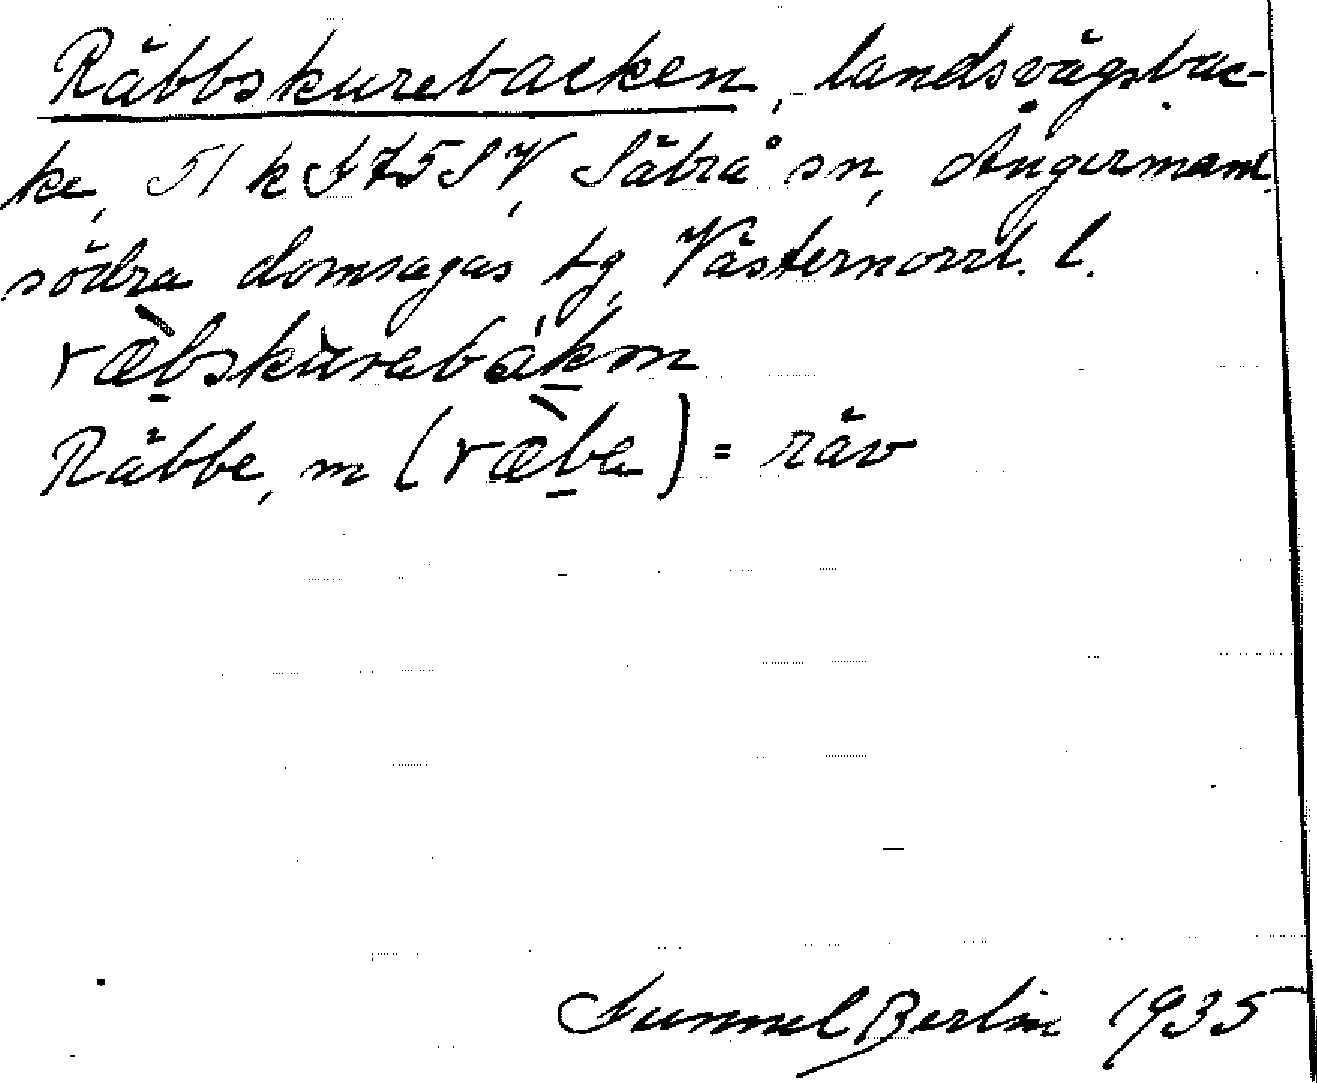 Räbbskurebacken, landsvägsbac-
ke, 51 k I 75 SV, Säbrå sn, Ångermanl.
södra domsagas tg, Västernorrl. l.
ræ̀bskùrebákm
Räbbe, m (ræ̀ba) = räv
Gunnel Berlin 1935